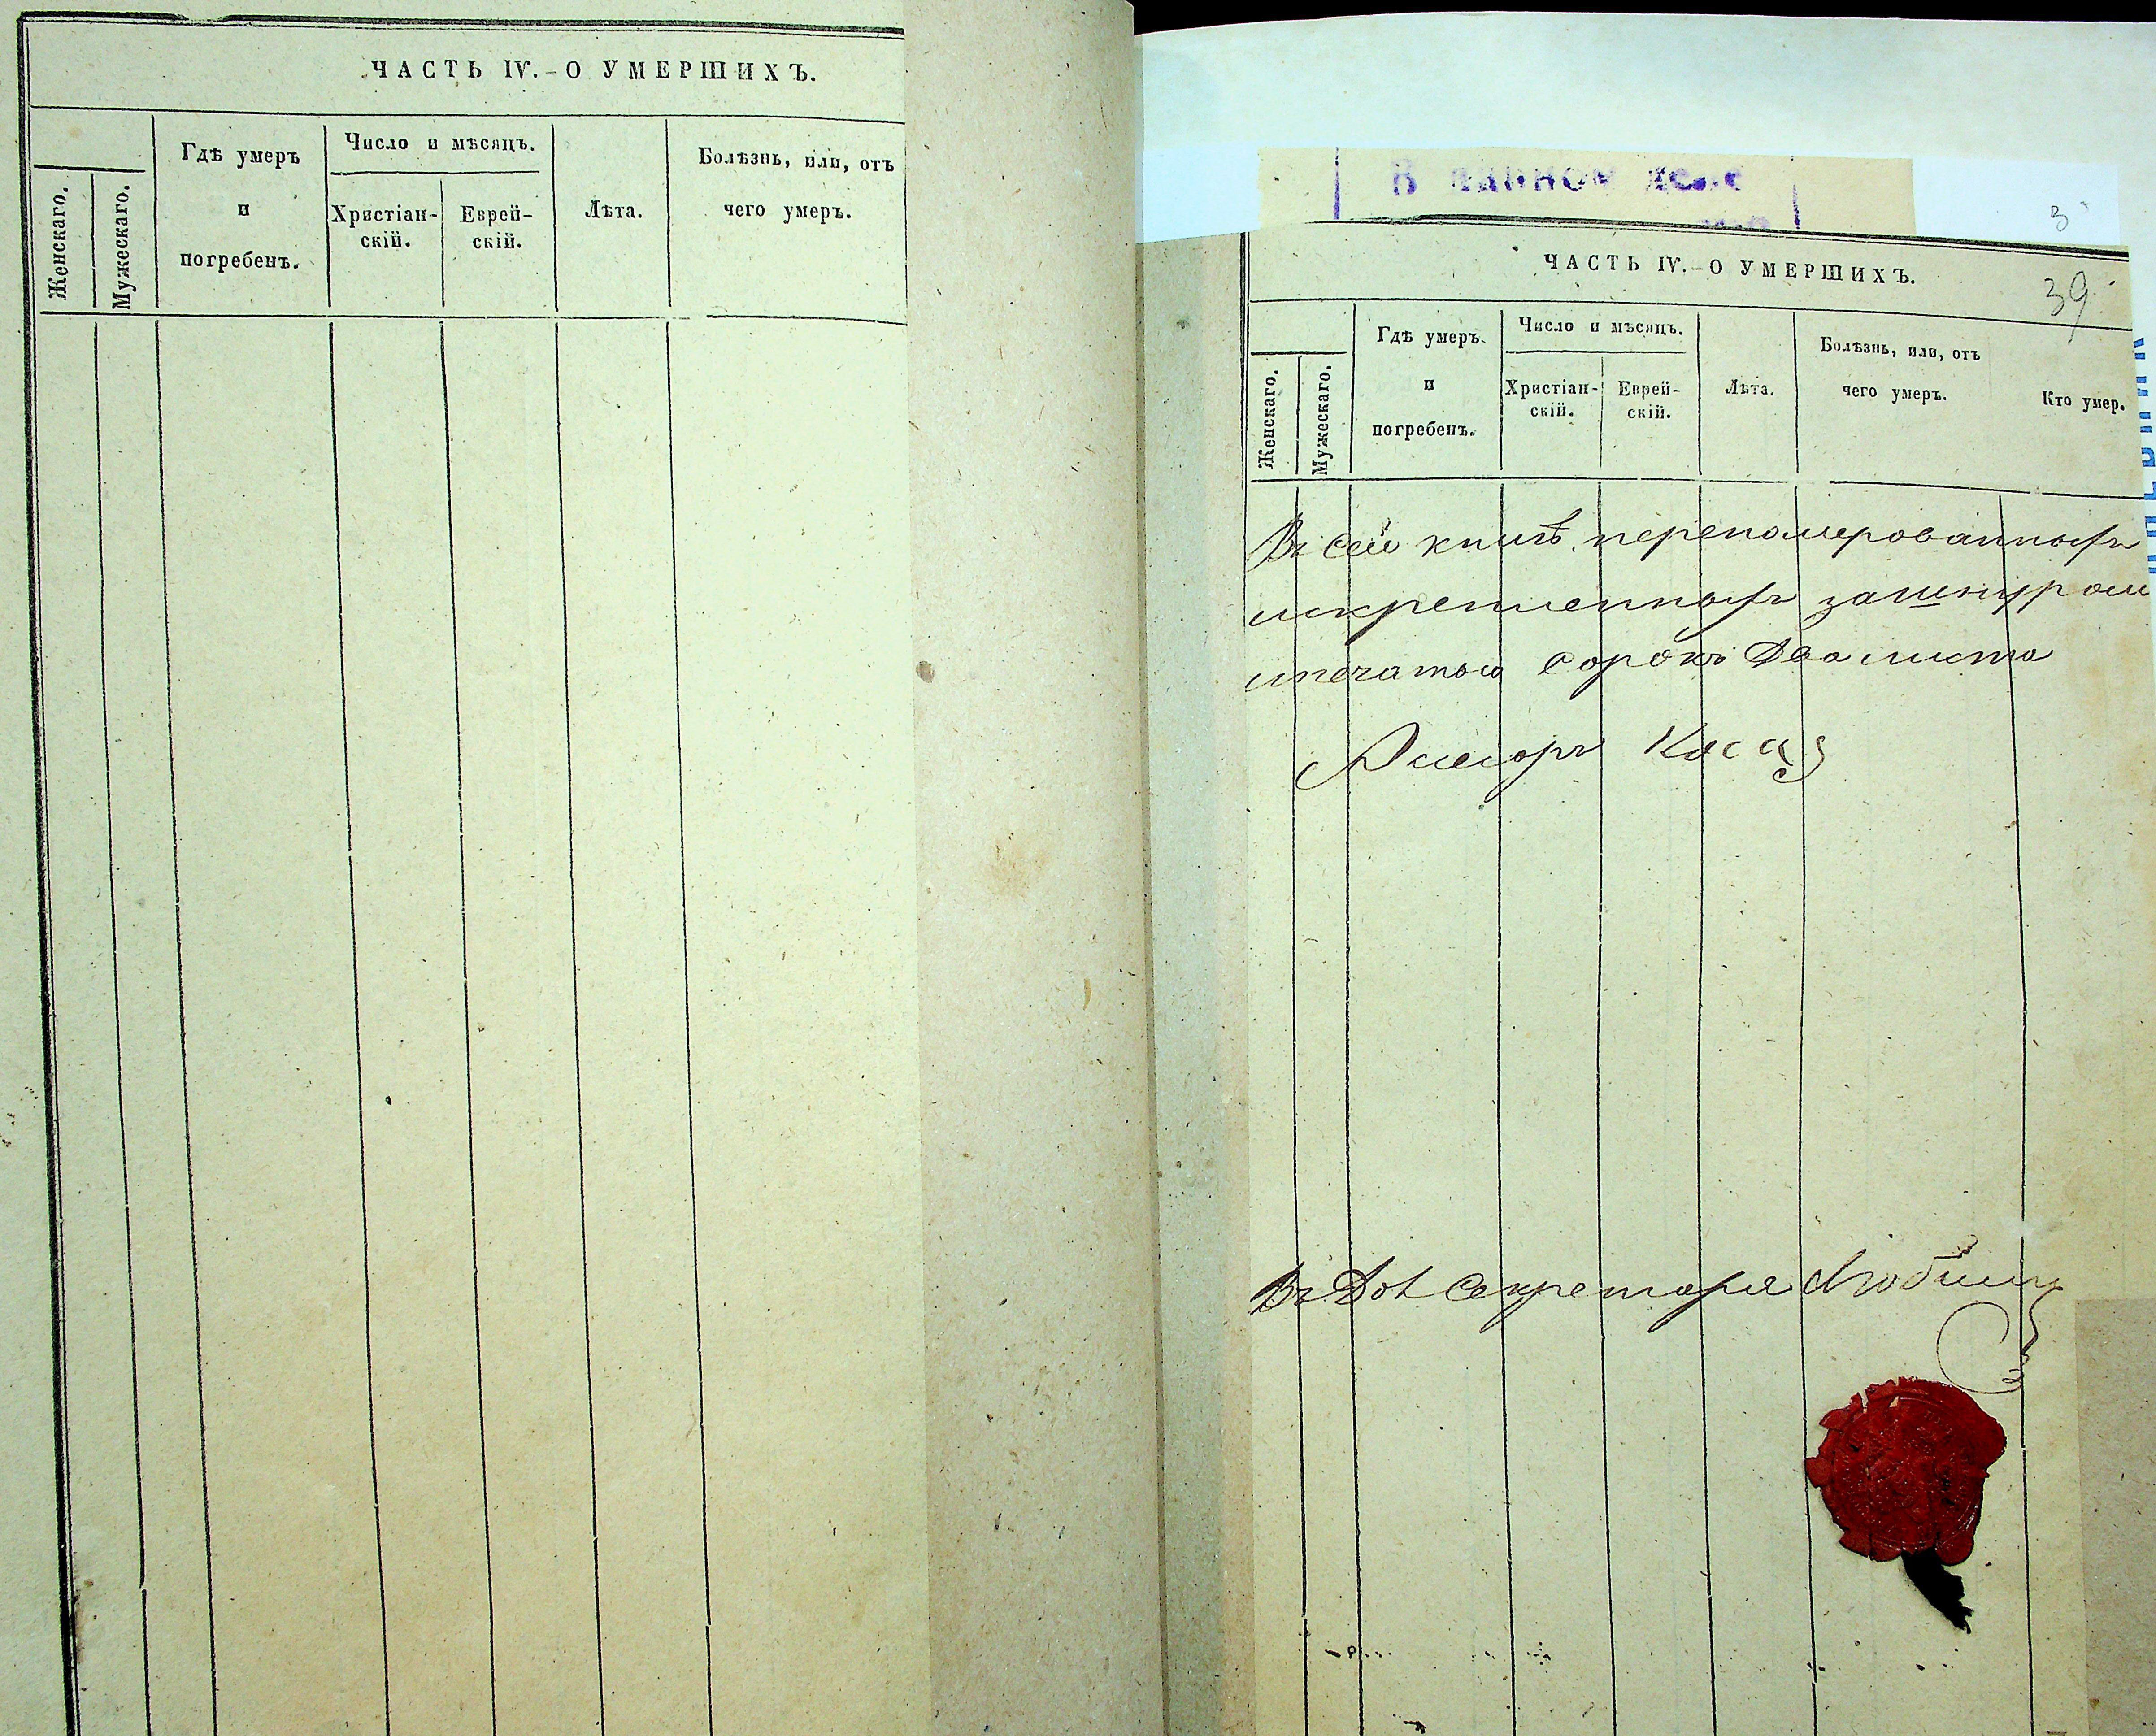 ЧАСТЬ IV. – О УМЕРШИХЪ.
Женскаго.
Мужескаго.
Гдѣ умеръ
и
погребенъ.
Число и мѣсяцъ.
Христіан-
скій.
Еврей-
скій.
Лѣта.
Болѣзнь, или, отъ
чего умеръ.
В данном деле
3
ЧАСТЬ IV. – О УМЕРШИХЪ.
39
Женскаго.
Мужескаго.
Гдѣ умеръ
и
погребенъ.
Число и мѣсяцъ.
Христіан-
скій.
Еврей-
скій.
Лѣта.
Болѣзнь, или, отъ
чего умеръ.
Кто умер.
Въ сей книгѣ переномерованныхъ
искрепленныхъ зашнуром
ипечатью сорокъ два листа
Въ Дол Секретаря